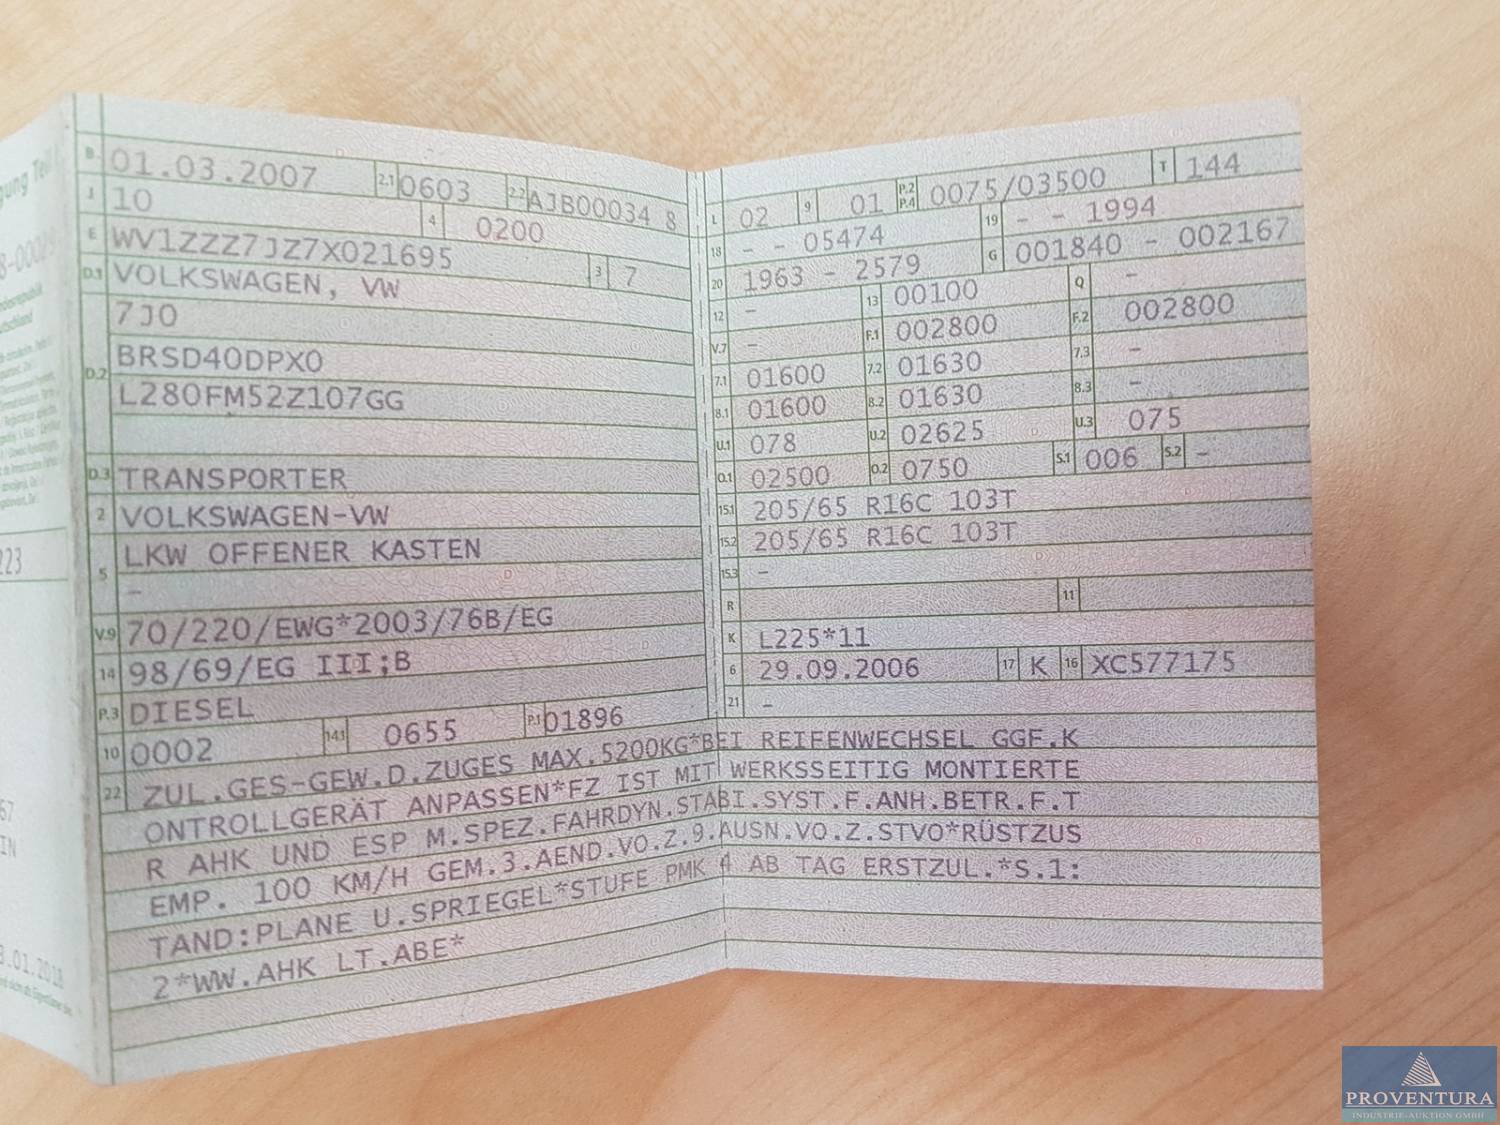 B 01.03.2007 2.1 0603 2.2 AJB00034 8
J 10 4 0200
E WV1ZZZ7JZ7X021695 3 7
D.1 VOLKSWAGEN, VW
7JO
D.2 BRSD40DPX0
L280FM52Z107GG
D.3 TRANSPORTER
2 VOLKSWAGEN-VW
5 LKW OFFENER KASTEN
–
V.9 70/220/EWG*2003/76B/EG
14 98/69/EG III;B
P.3 DIESEL
10 0002 14.1 0655 P.1 01896
L 02 9 01 P.2 P.4 0075/03500 T 144
18 – – 05474 19 – – 1994
20 1963 – 2579 G 001840 – 002167
12 – 13 00100 Q –
V.7 – F.1 002800 F.2 002800
7.1 01600 7.2 01630 7.3 –
8.1 01600 8.2 01630 8.3 –
U.1 078 U.2 02625 U.3 075
O.1 02500 O.2 0750 S.1 006 S.2 –
15.1 205/65 R16C 103T
15.2 205/65 R16C 103T
15.3 –
R 11
K L225*11
6 29.09.2006 17 K 16 XC577175
21 –
22 ZUL.GES-GEW.D.ZUGES MAX.5200KG*BEI REIFENWECHSEL GGF.K
ONTROLLGERÄT ANPASSEN*FZ IST MIT WERKSSEITIG MONTIERTE
R AHK UND ESP M.SPEZ.FAHRDYN.STABI.SYST.F.ANH.BETR.F.T
EMP. 100 KM/H GEM.3.AEND.VO.Z.9.AUSN.VO.Z.STVO*RÜSTZUS
TAND:PLANE U.SPRIEGEL*STUFE PMK 4 AB TAG ERSTZUL.*S.1:
2*WW.AHK LT.ABE*
223
PROVENTURA
INDUSTRIE-AUKTION GMBH